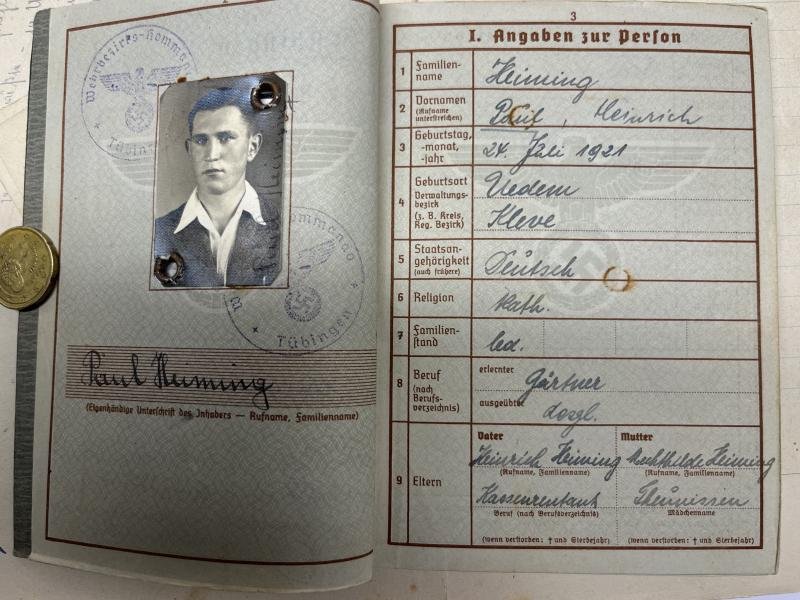 Wehrbezirks-Kommando
Tübingen
Kommando
Tübingen
Paul Heiming
(Eigenhändige Unterschrift des Inhabers — Rufname, Familienname)
3
I. Angaben zur Person
1 Familien-
name
Heiming
2 Vornamen
(Rufname
unterstreichen)
Paul, Heinrich
3 Geburtstag,
-monat,
-jahr
24. Juli 1921
4 Geburtsort
Verwaltungs-
bezirk
(z. B. Kreis,
Reg. Bezirk)
Uedem
Kleve
5 Staatsan-
gehörigkeit
(auch frühere)
Deutsch
6 Religion
kath.
7 Familien-
stand
led.
8 Beruf
(nach
Berufs-
verzeichnis)
erlernter
Gärtner
ausgeübter
desgl.
9 Eltern
Vater
Heinrich Heiming
(Rufname, Familienname)
Kassenrendant
Beruf (nach Berufsverzeichnis)
(wenn verstorben: † und Sterbejahr)
Mutter
Mechthilde Heiming
(Rufname, Familienname)
Theunissen
Mädchenname
(wenn verstorben: † und Sterbejahr)